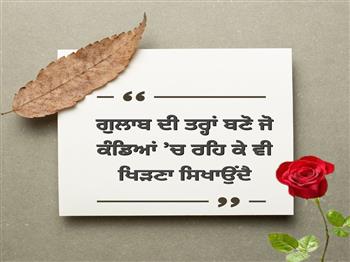 “
ਗੁਲਾਬ ਦੀ ਤਰ੍ਹਾਂ ਬਣੋ ਜੋ
ਕੰਡਿਆਂ ’ਚ ਰਹਿ ਕੇ ਵੀ
ਖਿੜਣਾ ਸਿਖਾਉਂਦੈ
”